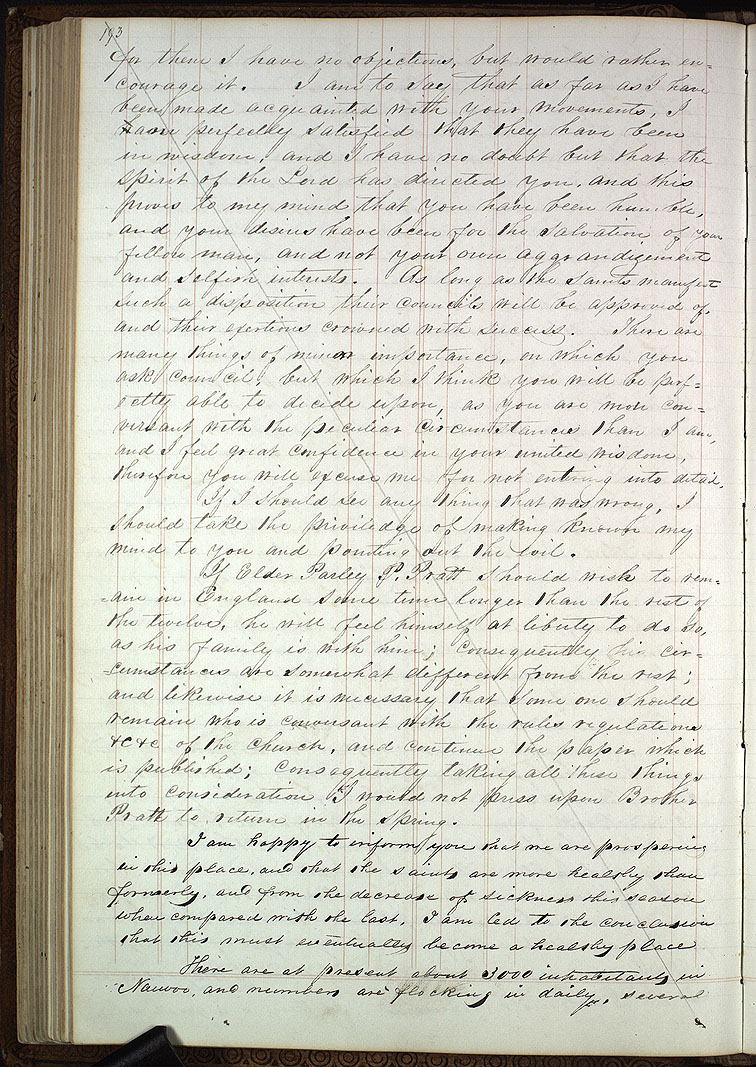 193
for them I have no objections, but would rather en=
courage it. I am to say that as far as I have
been made acquainted with your movements, I
am perfectly satisfied that they have been
in wisdom; and I have no doubt but that the
spirit of the Lord has directed you, and this
proves to my mind that you have been humble,
and your desires have been for the salvation of your
fellow man, and not your own aggrandizement
and selfish interests. As long as the saints manifest
such a disposition their councils will be approved of,
and their exertions crowned with success. There are
many things of minor importance, on which you
ask council, but which I think you will be perf=
ectly able to decide upon, as you are more con=
versant with the peculiar circumstances than I am,
and I feel great confidence in your united wisdom,
therefore you will excuse me for not entering into detail.
If I should see any thing that was wrong, I
should take the priviledge of making known my
mind to you and pointing out the evil.
If Elder Parley P. Pratt should wish to rem=
=ain in England some time longer than the rest of
the twelve, he will feel himself at liberty to do so,
as his family is with him; consequently his cir=
cumstances are somewhat different from the rest;
and likewise it is necessary that some one should
remain who is conversant with the rules regulations
&c &c of the church, and continue the paper which
is published; consequently taking all these things
into consideration I would not press upon Brother
Pratt to return in the spring.
I am happy to inform you that we are prospering
in this place, and that the saints are more healthy than
formerly, and from the decrease of sickness this season
when compared with the last, I am led to the conclusion
that this must eventually become a healthy place
There are at present about 3000 inhabitants in
Nauvoo, and numbers are flocking in daily, several